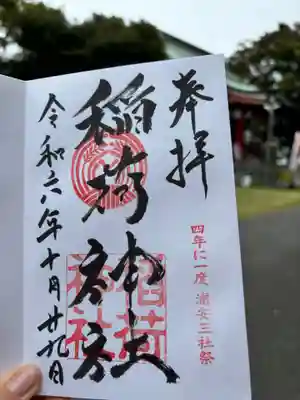 奉拝
四年に一度 浦安三社祭
稲荷神社
令和六年十月廿九日